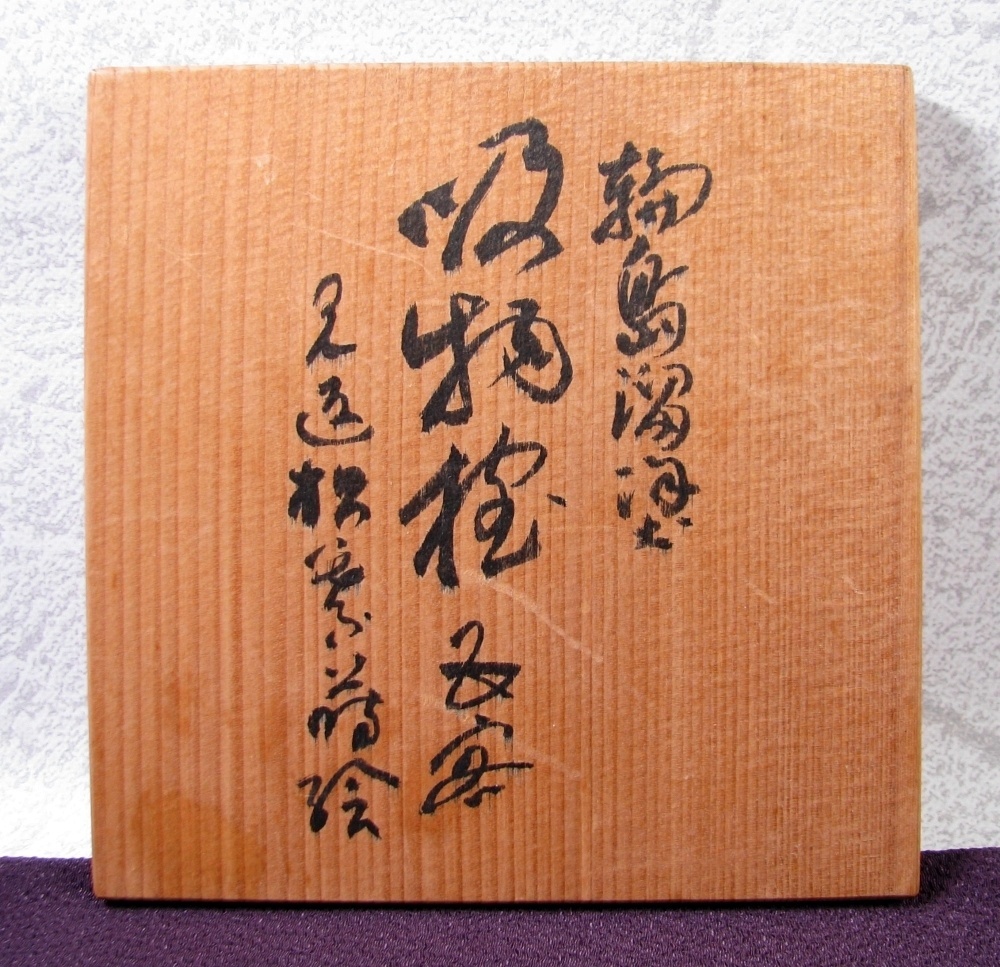 輪島溜塗
吸物椀 五客
見返松蒔絵